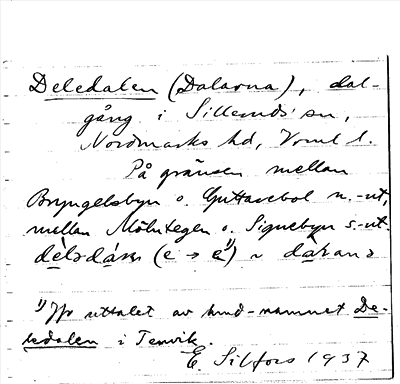 Deledalen (Dalarna), dal-
gång i Silleruds sn,
Nordmarks hd, Vrml l.
På gränsen mellan
Bryngelsbyn o. Guttarebol n.-ut,
mellan Mölntegen o. Signebyn s.-ut.
(e → e¹⁾) ~
¹⁾ Jfr uttalet av hmd-namnet De-
ledalen i Tenvik.
E. Silfors 1937